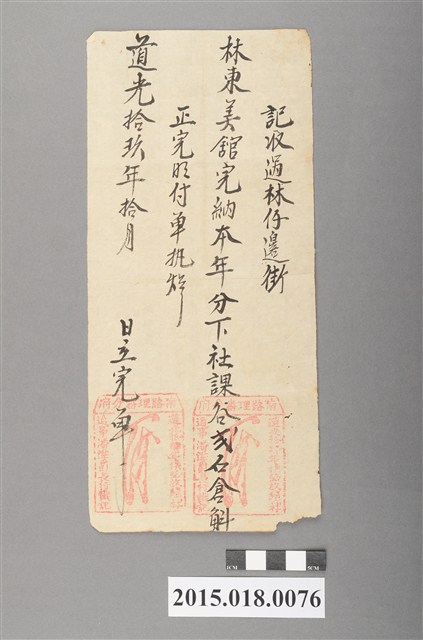 記收過林仔邊街
林東美館完納本年分下社課谷弍石倉斛
正完明付單執炤
道光拾玖年拾月
日立完單
2015.018.0076